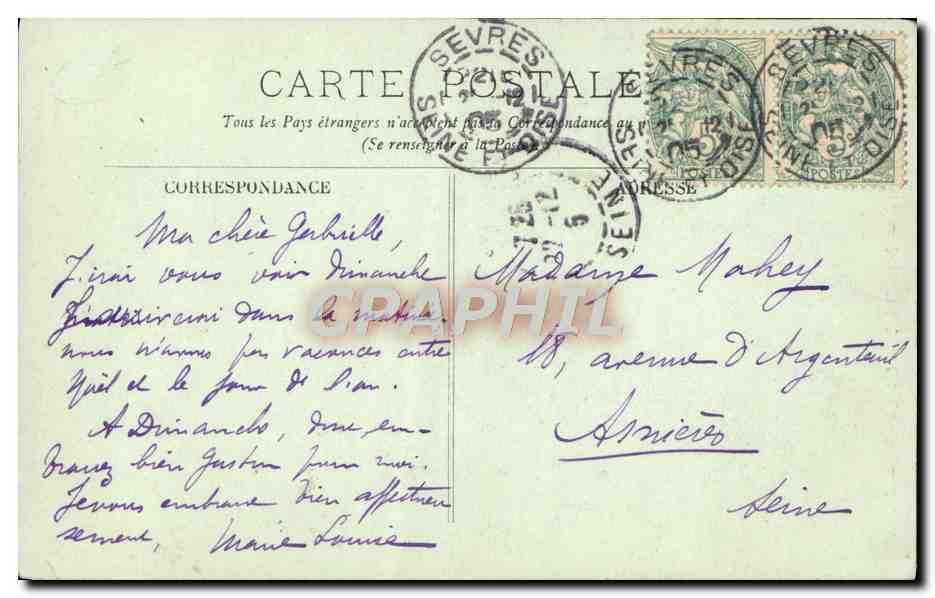 CARTE POSTALE
Tous les Pays étrangers n'acceptent pas la Correspondance au
(Se renseigner à la Poste)
CORRESPONDANCE
ADRESSE
Ma chère Gabrielle,
J'irai vous voir Dimanche
dans la matinée.
nous n'avons pas vacances entre
Noël et le jour de l'an.
A Dimanche, donc, em-
brassez bien Gaston pour moi.
Je vous embrasse bien affectueu
sement, Marie Louise
Madame Mahey
18, avenue d'Argenteuil
Asnières
Seine
SEVRES
SEINE ET OISE
SEVRES
05
SEVRES
05
OISE
5
POSTES
5
POSTES
SEINE
CPAPHIL